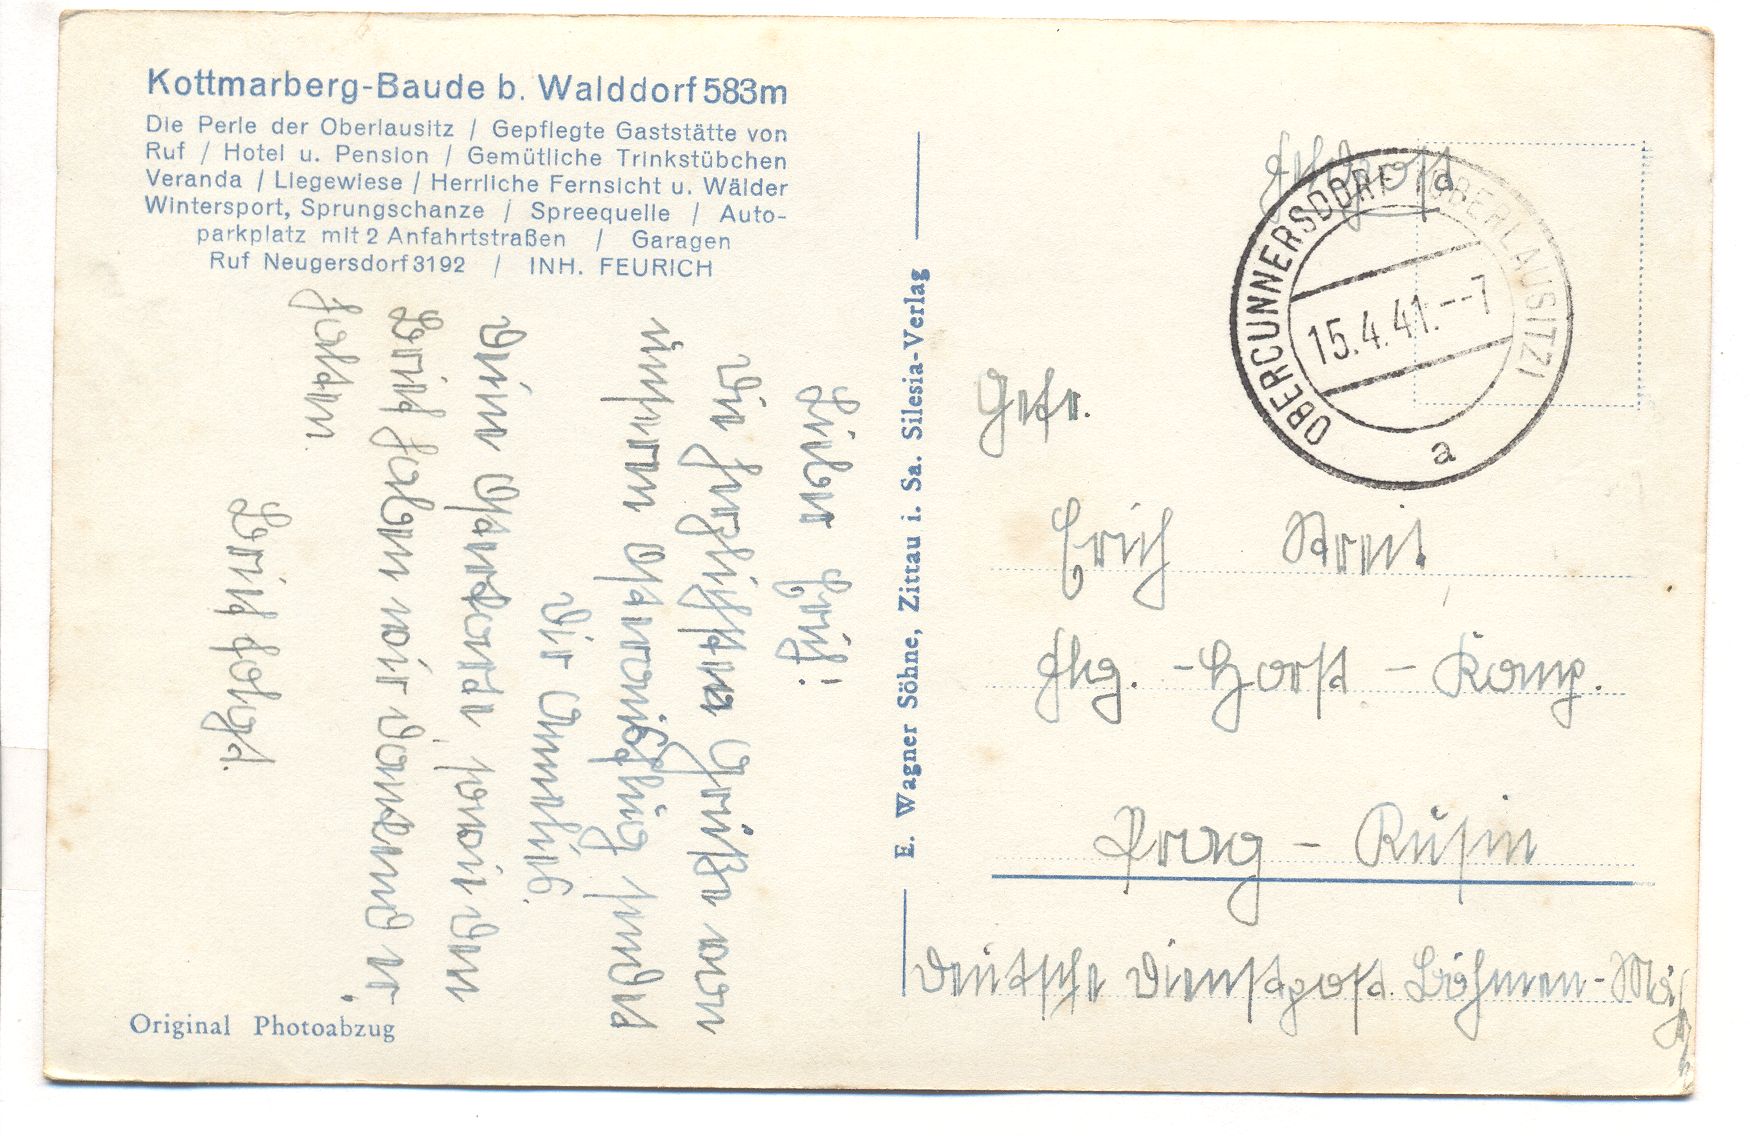 Kottmarberg-Baude b. Walddorf 583m
Die Perle der Oberlausitz / Gepflegte Gaststätte von
Ruf / Hotel u. Pension / Gemütliche Trinkstübchen
Veranda / Liegewiese / Herrliche Fernsicht u. Wälder
Wintersport, Sprungschanze / Spreequelle / Auto-
parkplatz mit 2 Anfahrtstraßen / Garagen
Ruf Neugersdorf 3192 / INH. FEURICH
Lieber Erich!
Die herzlichsten Grüße von
unserem sendet
Dir Annelies.
Deine Osterkarte, sowie den
Brief haben wir dankend er-
halten.
Brief folgt.
Original Photoabzug
E. Wagner Söhne, Zittau i. Sa. Silesia-Verlag
Feldpost
OBERCUNNERSDORF (OBERLAUSITZ)
15.4.41.--7
a
Gefr.
Erich
Fhg. - Horst - Komp.
Prag - Rusin
Deutsche Dienstpost Böhmen-Mäh